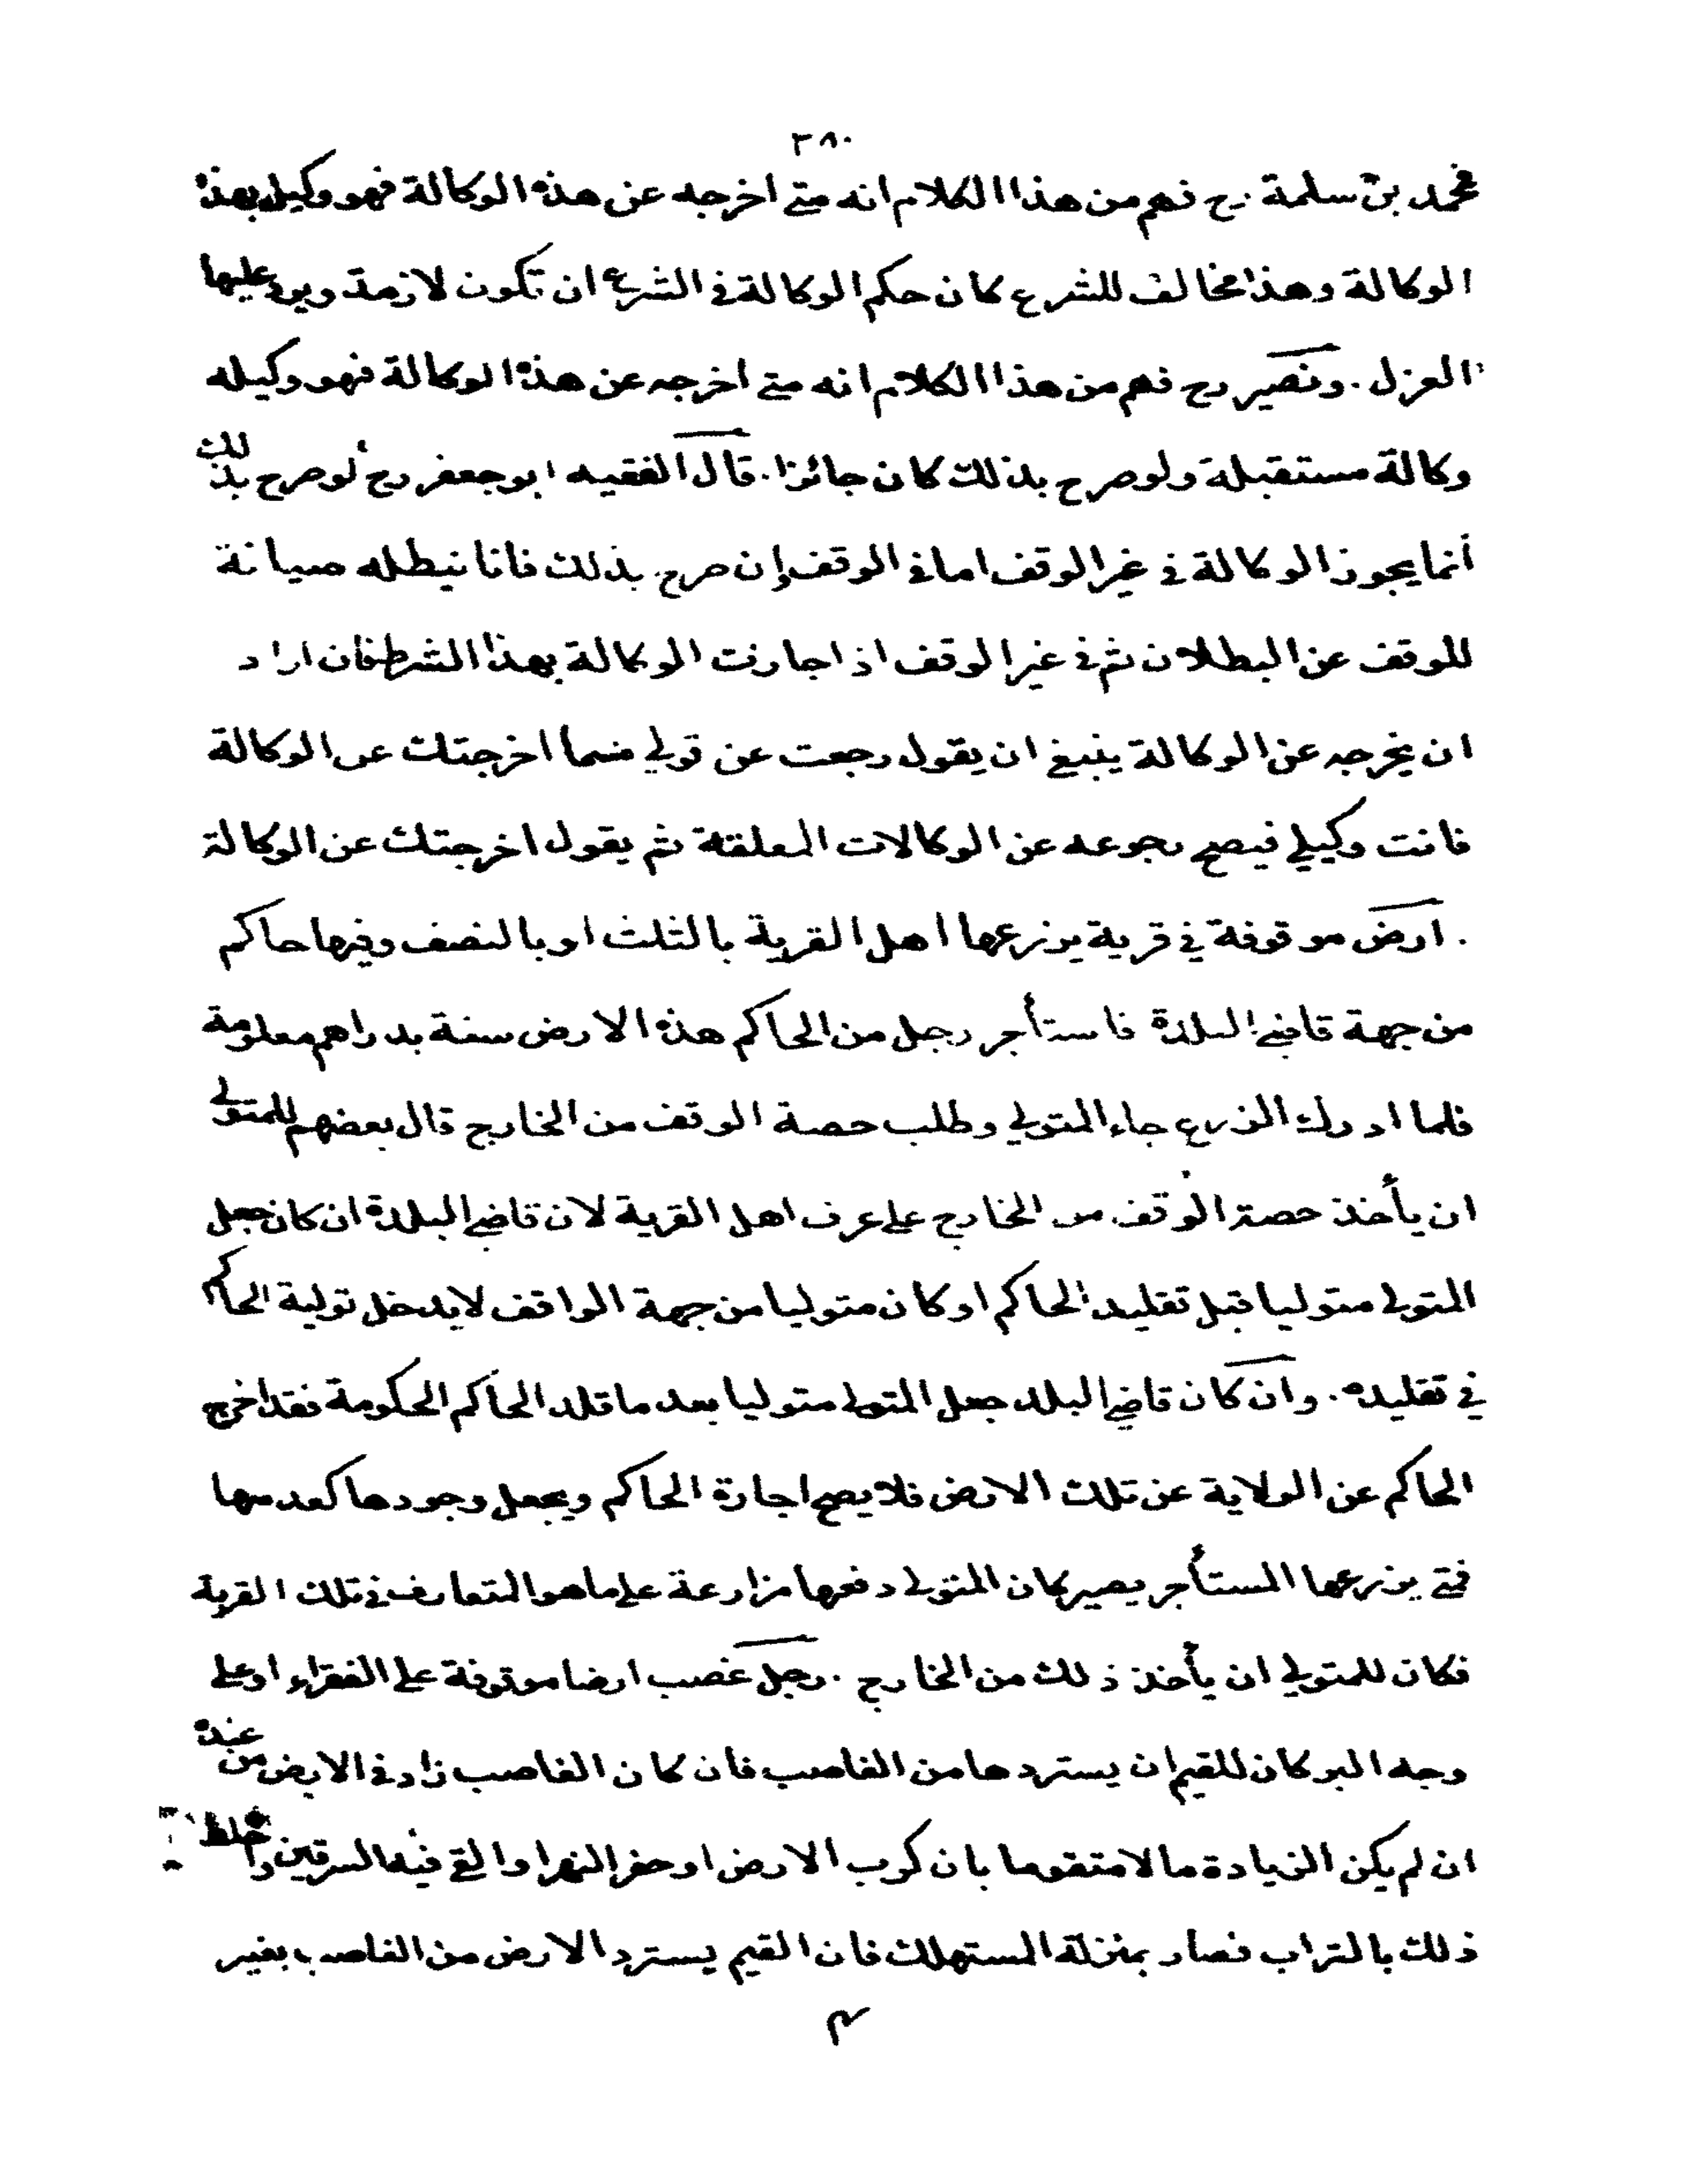 ٣٨٠
محمد بن سلمة رح فهم من هذا الكلام انه متى اخرجه عن هذه الوكالة فهو وكيل بهذه
الوكالة وهذا مخالف للشرع كان حكم الوكالة في الشرع ان تكون لازمة ويرد عليها
العزل . ونصير رح فهم من هذا الكلام انه متى اخرجه عن هذه الوكالة فهو وكيله
وكالة مستقبلة ولو صرح بذلك كان جائزا . قال الفقيه ابو جعفر رح لو صرح بذلك
أنما يجوز الوكالة في غير الوقف اما في الوقف إن صرح بذلك فانا نبطله صيانة
للوقف عن البطلان ثم في غير الوقف اذا جازت الوكالة بهذا الشرط فان اراد
ان يخرجه عن الوكالة ينبغي ان يقول رجعت عن قولي متما اخرجتك عن الوكالة
فانت وكيلي فيصح رجوعه عن الوكالات المعلقة ثم يقول اخرجتك عن الوكالة
. ارض موقوفة في قرية يزرعها اهل القرية بالثلث او بالنصف وفيها حاكم
من جهة قاضي البلدة فاستأجر رجل من الحاكم هذه الارض سنة بدراهم معلومة
فلما ادرك الزرع جاء المتولي وطلب حصة الوقف من الخارج قال بعضهم للمتولي
ان يأخذ حصة الوقف من الخارج على عرف اهل القرية لان قاضي البلدة ان كان جعل
المتولي متوليا قبل تقليد الحاكم او كان متوليا من جهة الواقف لا يدخل تولية الحاكم
في تقليده . وان كان قاضي البلد جعل المتولي متوليا بعد ما قلد الحاكم الحكومة فقد اخرج
الحاكم عن الولاية عن تلك الارض فلا يصح اجارة الحاكم ويجعل وجودها كعدمها
فمتى يزرعها المستأجر يصير كان المتولي دفعها مزارعة على ما هو المتعارف في تلك القرية
فكان للمتولي ان يأخذ ذلك من الخارج . رجل غصب ارضا موقوفة على الفقراء او على
وجه البر كان للقيم ان يستردها من الغاصب فان كان الغاصب زاد في الارض من عنده
ان لم يكن الزيادة مالا متقوما بان كرب الارض او حفر النهر او القى فيها السرقين واختلط
ذلك بالتراب فصار بمنزلة المستهلك فان القيم يسترد الارض من الغاصب بغير